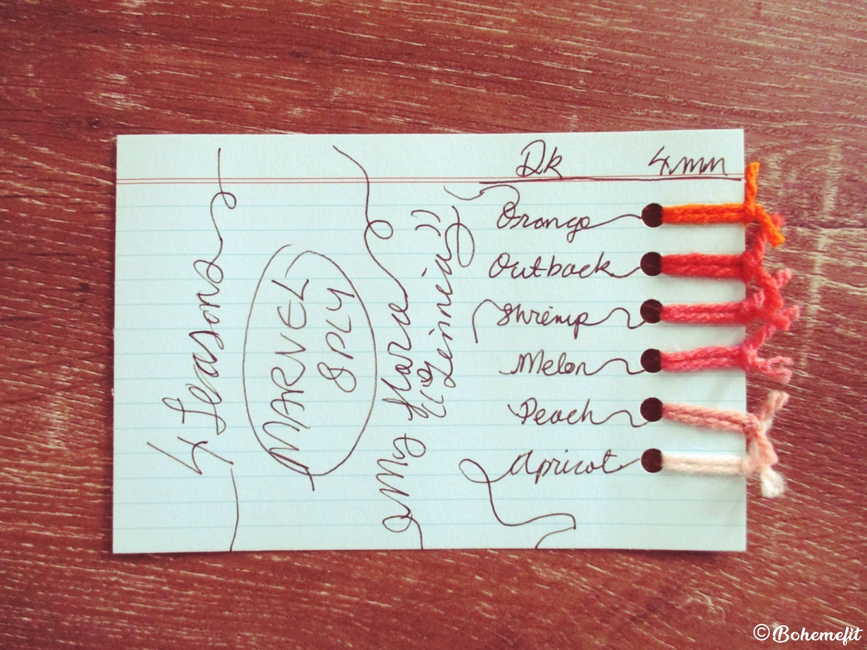 4 Seasons
MARVEL
8 PLY
My Hara
"Zinnia"
DK 4mm
Orange
Outback
Shrimp
Melon
Peach
Apricot
©Bohemefit